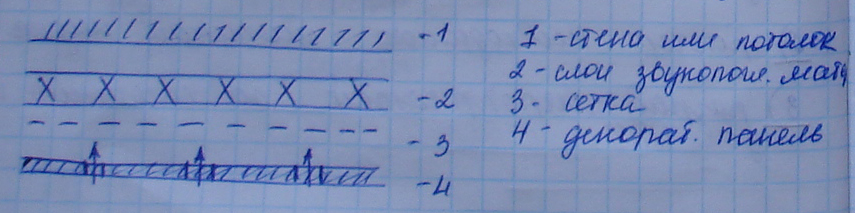 -1 1 - стена или потолок
2 - слой звукопогл. мат.
-2 3 - сетка
4 - декорат. панель
-3
-4